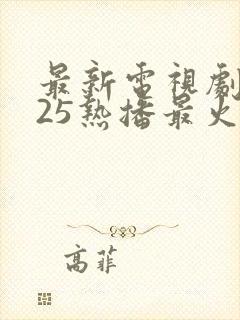 最新電視劇
25熱播最火
高菲